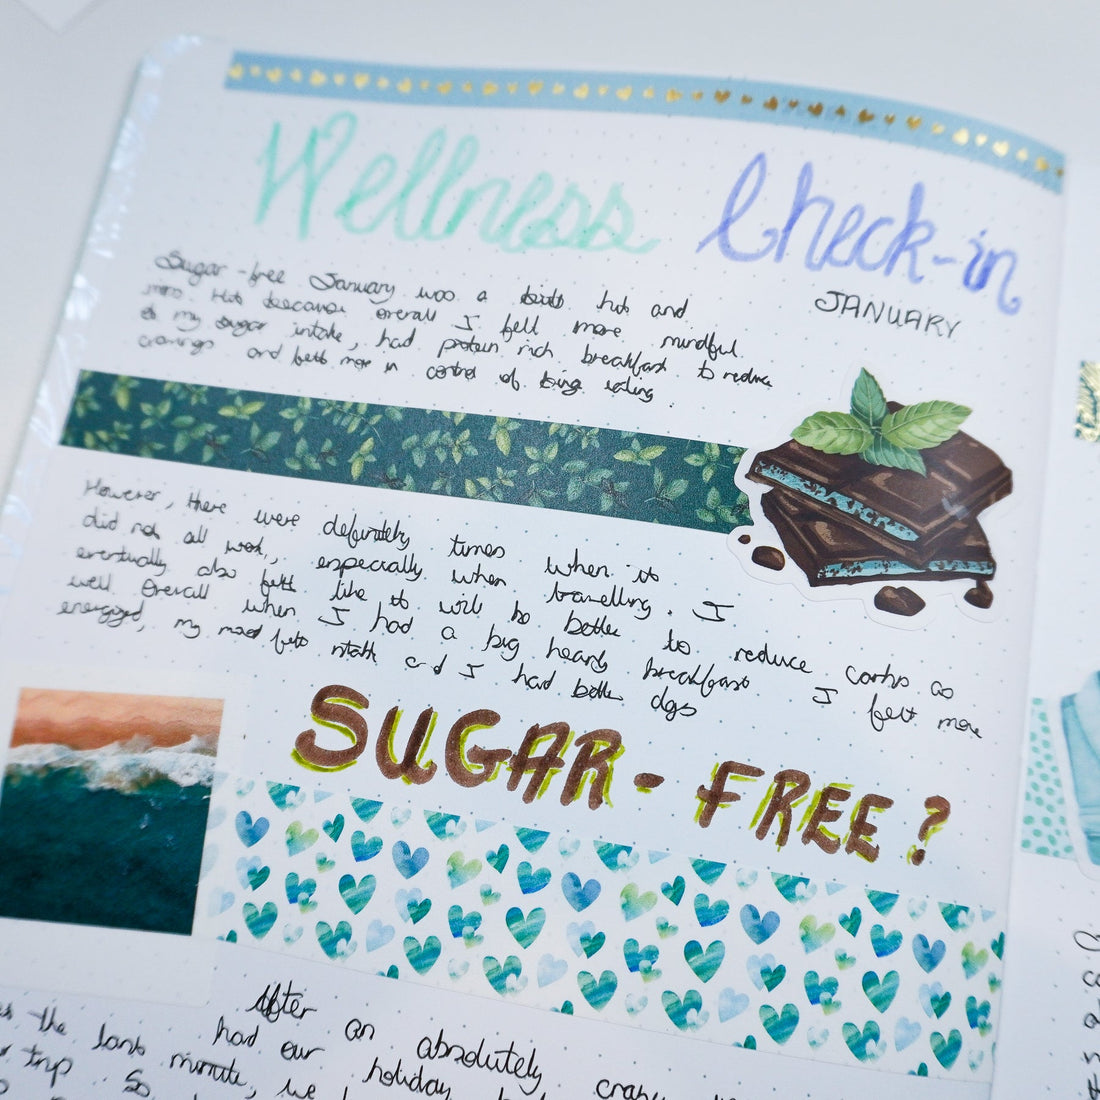 Wellness Check-in
JANUARY
Sugar-free January was a bit hit and
miss. Hit because overall I felt more mindful
of my sugar intake, had protein rich breakfast to reduce
cravings and felt more in control of binge eating.
However, there were definitely times when it
did not all work, especially when travelling. I
eventually also felt like it will be better to reduce carbs as
well. Overall when I had a big hearty breakfast I felt more
energized, my mood felt stable and I had better days
SUGAR-FREE?
After an absolutely crazy
the last minute, had our holiday
trip. So we